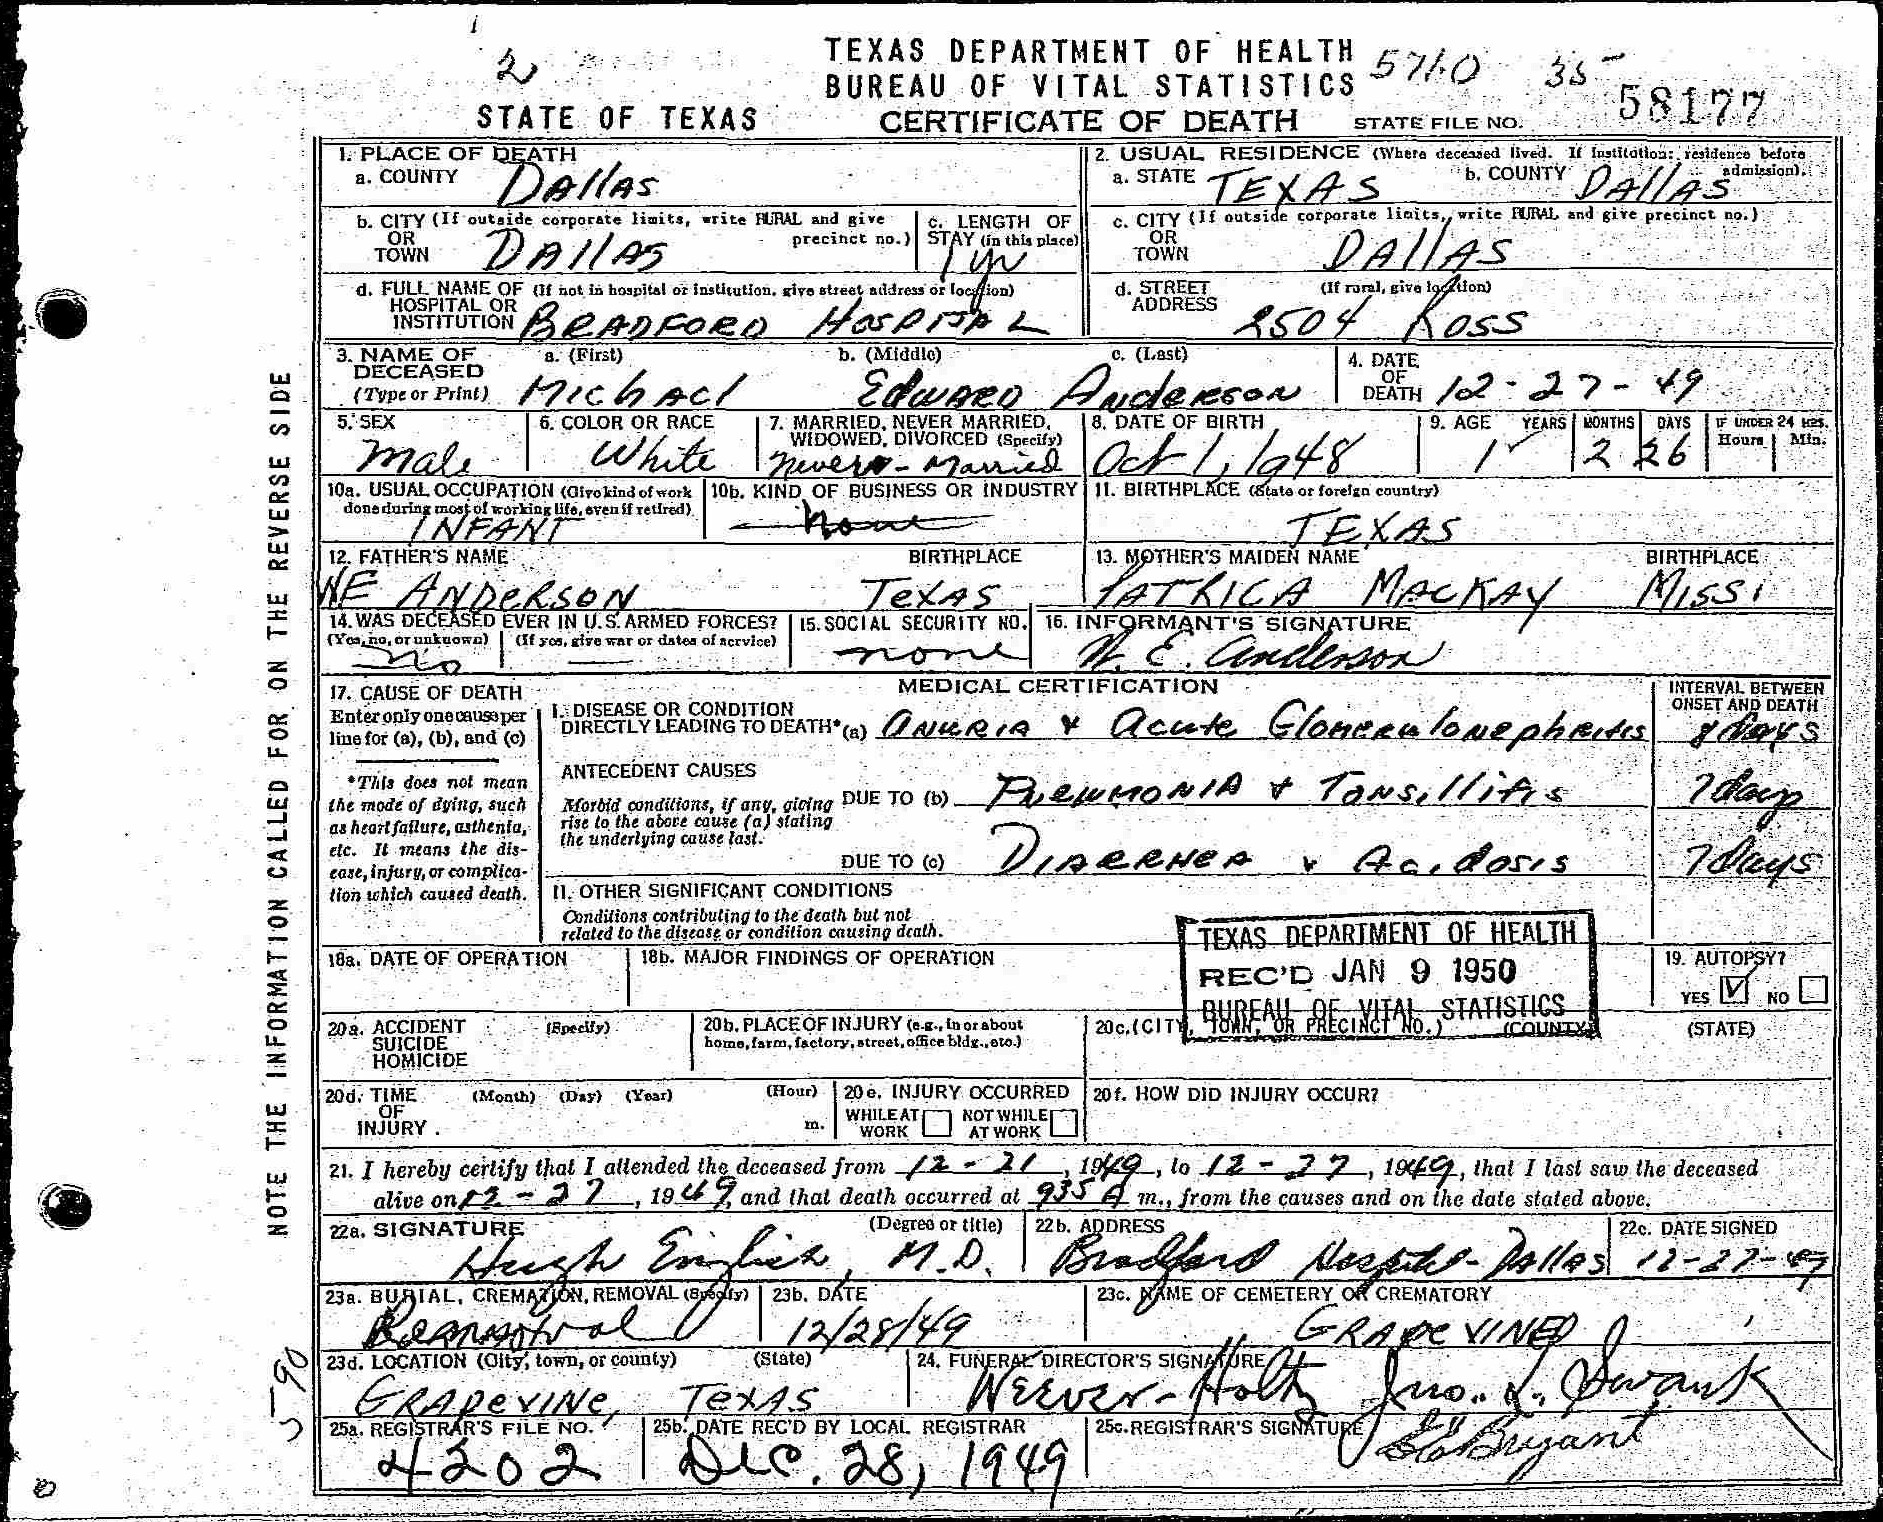 2
TEXAS DEPARTMENT OF HEALTH
BUREAU OF VITAL STATISTICS
5710 35
58177
STATE OF TEXAS CERTIFICATE OF DEATH STATE FILE NO.
NOTE THE INFORMATION CALLED FOR ON THE REVERSE SIDE
1. PLACE OF DEATH
a. COUNTY Dallas
2. USUAL RESIDENCE (Where deceased lived. If Institution: residence before admission).
a. STATE TEXAS b. COUNTY Dallas
b. CITY (If outside corporate limits, write RURAL and give precinct no.)
OR
TOWN Dallas
c. LENGTH OF
STAY (in this place)
1 yr
c. CITY (If outside corporate limits, write RURAL and give precinct no.)
OR
TOWN Dallas
d. FULL NAME OF (If not in hospital or institution, give street address or location)
HOSPITAL OR
INSTITUTION BRADFORD HOSPITAL
d. STREET (If rural, give location)
ADDRESS 2504 Ross
3. NAME OF DECEASED (Type or Print)
a. (First) Michael
b. (Middle) Edward
c. (Last) Anderson
4. DATE OF DEATH 12-27-49
5. SEX Male
6. COLOR OR RACE White
7. MARRIED, NEVER MARRIED, WIDOWED, DIVORCED (Specify)
Never-Married
8. DATE OF BIRTH Oct 1, 1948
9. AGE YEARS MONTHS DAYS IF UNDER 24 HRS. Hours Min.
1 2 26
10a. USUAL OCCUPATION (Give kind of work done during most of working life, even if retired)
INFANT
10b. KIND OF BUSINESS OR INDUSTRY
none
11. BIRTHPLACE (State or foreign country)
TEXAS
12. FATHER'S NAME BIRTHPLACE
WE ANDERSON Texas
13. MOTHER'S MAIDEN NAME BIRTHPLACE
PATRICA MACKAY MISSI
14. WAS DECEASED EVER IN U.S. ARMED FORCES?
(Yes, no, or unknown) (If yes, give war or dates of service)
No —
15. SOCIAL SECURITY NO.
none
16. INFORMANT'S SIGNATURE
W. E. Anderson
17. CAUSE OF DEATH
Enter only one cause per line for (a), (b), and (c)
*This does not mean the mode of dying, such as heart failure, asthenia, etc. It means the disease, injury, or complication which caused death.
MEDICAL CERTIFICATION
INTERVAL BETWEEN ONSET AND DEATH
I. DISEASE OR CONDITION
DIRECTLY LEADING TO DEATH* (a) Anuria & Acute Glomerulonephritis 8 days
ANTECEDENT CAUSES
Morbid conditions, if any, giving rise to the above cause (a) stating the underlying cause last.
DUE TO (b) Pneumonia & Tonsillitis 7 days
DUE TO (c) Diarrhea & Acidosis 7 days
II. OTHER SIGNIFICANT CONDITIONS
Conditions contributing to the death but not related to the disease or condition causing death.
TEXAS DEPARTMENT OF HEALTH
REC'D JAN 9 1950
BUREAU OF VITAL STATISTICS
18a. DATE OF OPERATION
18b. MAJOR FINDINGS OF OPERATION
19. AUTOPSY?
YES ☑ NO ☐
20a. ACCIDENT (Specify)
SUICIDE
HOMICIDE
20b. PLACE OF INJURY (e.g., in or about home, farm, factory, street, office bldg., etc.)
20c. (CITY, TOWN, OR PRECINCT NO.) (COUNTY) (STATE)
20d. TIME (Month) (Day) (Year) (Hour)
OF
INJURY . m.
20e. INJURY OCCURRED
WHILE AT WORK ☐ NOT WHILE AT WORK ☐
20f. HOW DID INJURY OCCUR?
21. I hereby certify that I attended the deceased from 12-21, 1949, to 12-27, 1949, that I last saw the deceased
alive on 12-27, 1949, and that death occurred at 935 A m., from the causes and on the date stated above.
22a. SIGNATURE (Degree or title)
Hugh English, M.D.
22b. ADDRESS
Bradford Hospital-Dallas
22c. DATE SIGNED
12-27-49
23a. BURIAL, CREMATION, REMOVAL (Specify)
Removal
23b. DATE
12/28/49
23c. NAME OF CEMETERY OR CREMATORY
GRAPEVINE
23d. LOCATION (City, town, or county) (State)
GRAPEVINE, TEXAS
24. FUNERAL DIRECTOR'S SIGNATURE
Weever-Holtz Jno. L. Swank
25a. REGISTRAR'S FILE NO.
4202
25b. DATE REC'D BY LOCAL REGISTRAR
Dec. 28, 1949
25c. REGISTRAR'S SIGNATURE
Bryant